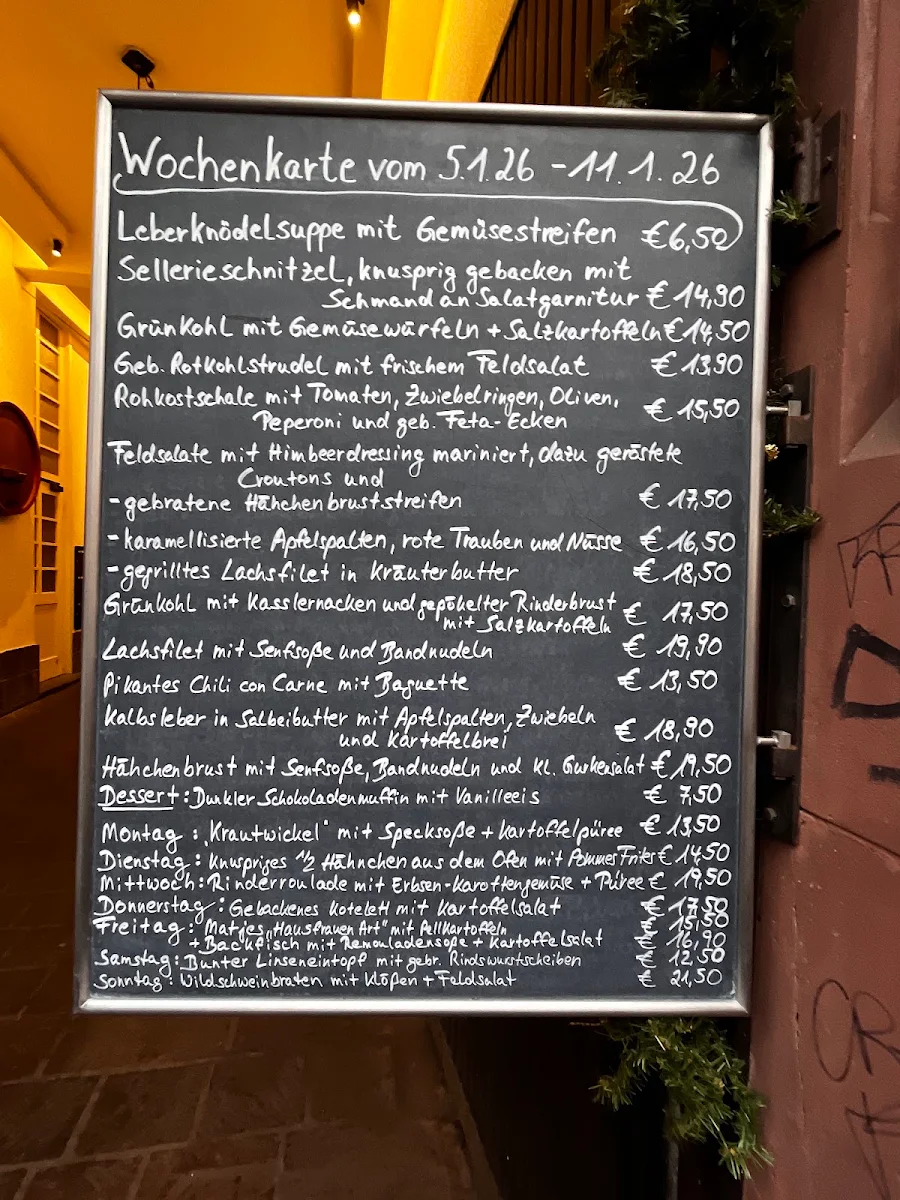 Wochenkarte vom 5.1.26 - 11.1.26
Leberknödelsuppe mit Gemüsestreifen € 6,50
Sellerieschnitzel, knusprig gebacken mit
Schmand an Salatgarnitur € 14,90
Grünkohl mit Gemüsewürfeln + Salzkartoffeln € 14,50
Geb. Rotkohlstrudel mit frischem Feldsalat € 13,90
Rohkostschale mit Tomaten, Zwiebelringen, Oliven,
Peperoni und geb. Feta-Ecken € 15,50
Feldsalate mit Himbeerdressing mariniert, dazu geröstete
Croutons und
- gebratene Hähchenbruststreifen € 17,50
- karamellisierte Apfelspalten, rote Trauben und Nüsse € 16,50
- gegrilltes Lachsfilet in Kräuterbutter € 18,50
Grünkohl mit Kasslernacken und gepökelter Rinderbrust
mit Salzkartoffeln € 17,50
Lachsfilet mit Senfsoße und Bandnudeln € 19,90
Pikantes Chili con Carne mit Baguette € 13,50
Kalbsleber in Salbeibutter mit Apfelspalten, Zwiebeln
und Kartoffelbrei € 18,90
Hähchenbrust mit Senfsoße, Bandnudeln und kl. Gurkensalat € 19,50
Dessert: Dunkler Schokoladenmuffin mit Vanilleeis € 7,50
Montag: „Krautwickel" mit Specksoße + Kartoffelpüree € 13,50
Dienstag: Knuspriges 1/2 Hähnchen aus dem Ofen mit Pommes Frites € 14,50
Mittwoch: Rinderroulade mit Erbsen-Karottengemüse + Püree € 19,50
Donnerstag: Gebackenes Kotelett mit Kartoffelsalat € 17,50
Freitag: Matjes „Hausfrauen Art" mit Pellkartoffeln € 15,50
+ Backfisch mit Remouladensoße + Kartoffelsalat € 16,90
Samstag: Bunter Linseneintopf mit gebr. Rindswurstscheiben € 12,50
Sonntag: Wildschweinbraten mit Klößen + Feldsalat € 21,50